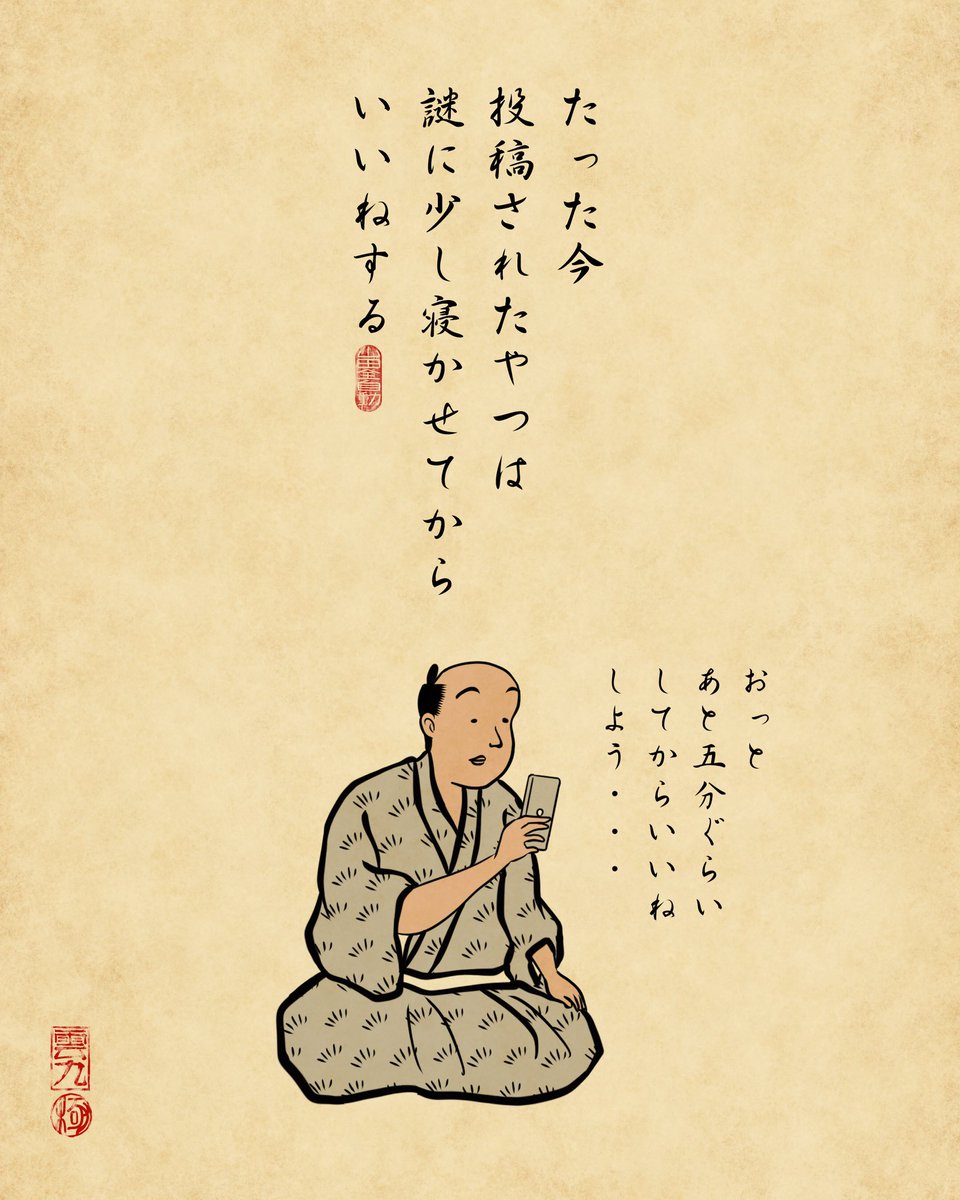 たった今
投稿されたやつは
謎に少し寝かせてから
いいねする
おっと
あと五分ぐらい
してからいいね
しよう・・・